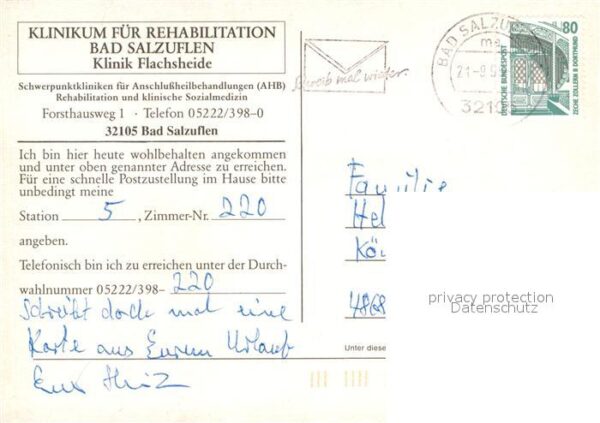 KLINIKUM FÜR REHABILITATION
BAD SALZUFLEN
Klinik Flachsheide
Schwerpunktkliniken für Anschlußheilbehandlungen (AHB)
Rehabilitation und klinische Sozialmedizin
Forsthausweg 1 · Telefon 05222/398-0
32105 Bad Salzuflen
Ich bin hier heute wohlbehalten angekommen
und unter oben genannter Adresse zu erreichen.
Für eine schnelle Postzustellung im Hause bitte
unbedingt meine
Station 5, Zimmer-Nr. 220
angeben.
Telefonisch bin ich zu erreichen unter der Durch-
wahlnummer 05222/398- 220
Schreibt doch mal eine
Karte aus Eurem Urlaub
Euer
Schreib mal wieder.
BAD SALZU
21-9
3210
80
DEUTSCHE BUNDESPOST
ZECHE ZOLLERN II DORTMUND
Familie
Hel
Kö
4868
privacy protection
Datenschutz
Unter diese